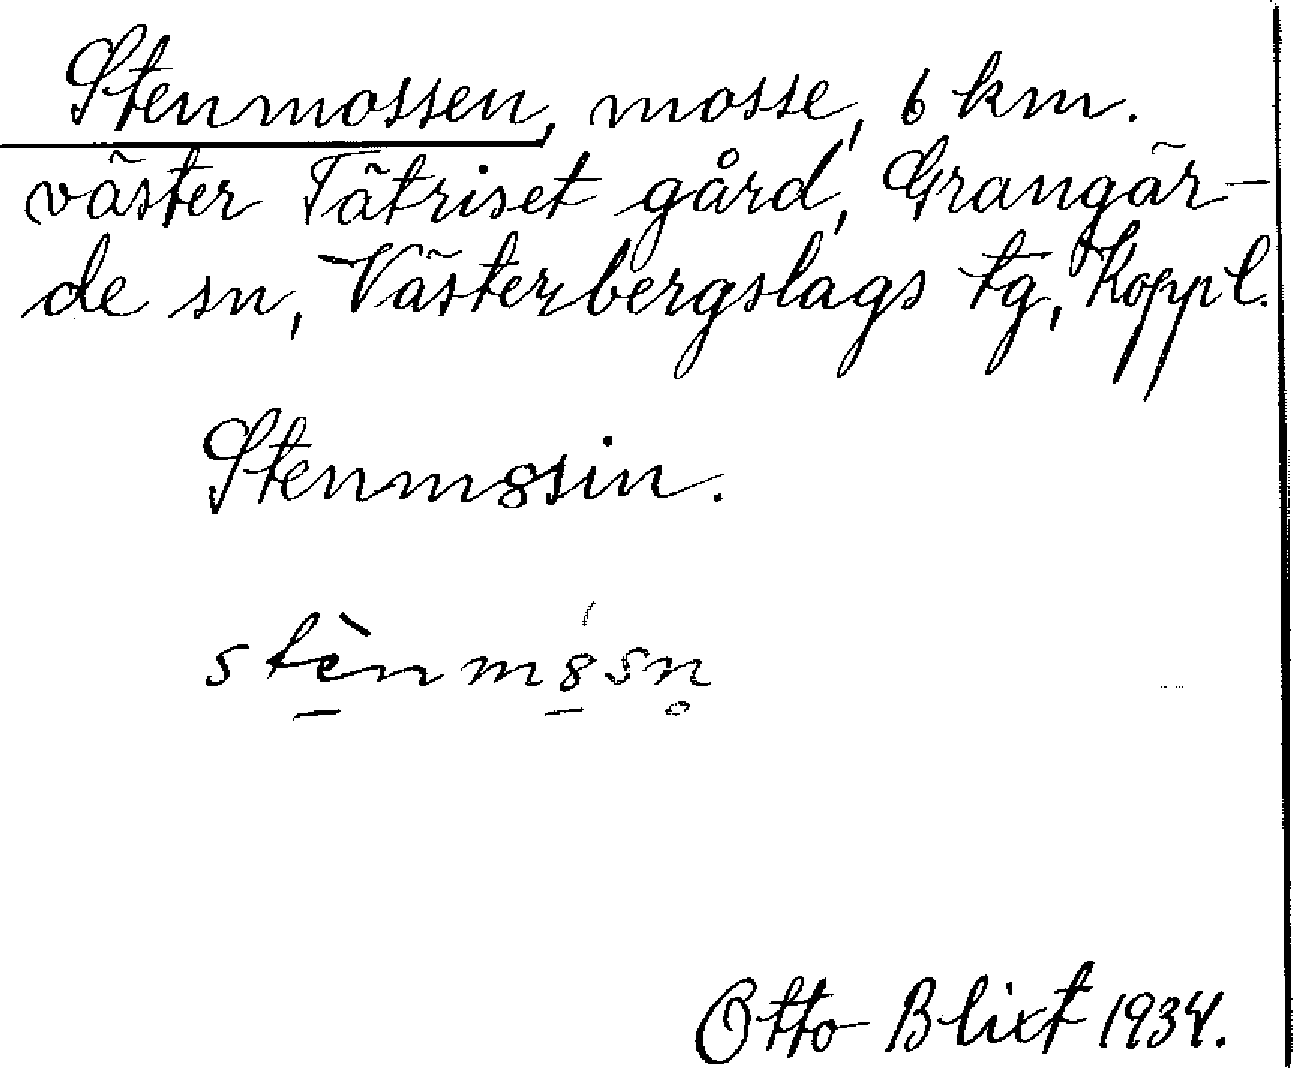 Stenmossen, mosse, 6 km.
väster Tätriset gård, Grangär-
de sn, Västerbergslags tg, Koppl.
Stenm8sin.
stènm8́sn̥
Otto Blixt 1934.